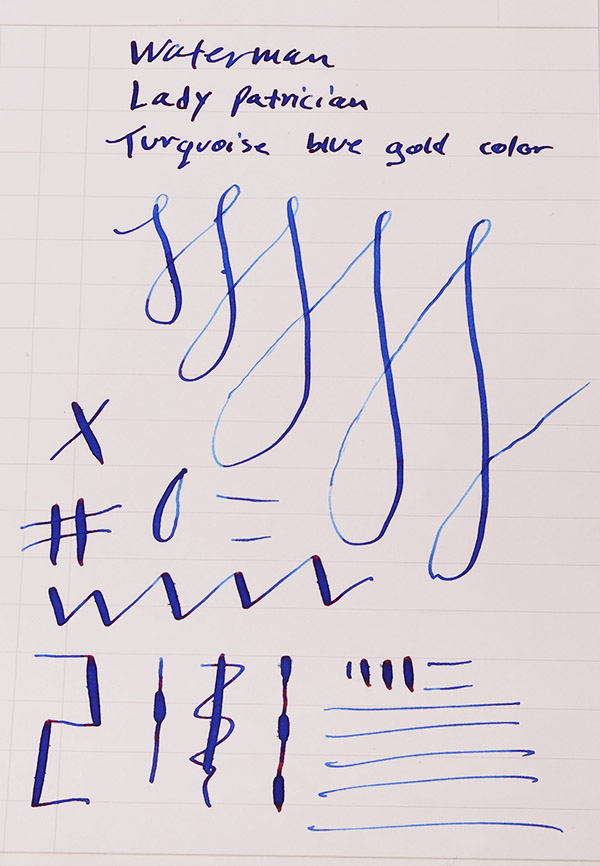 Waterman
Lady Patrician
Turquoise blue gold color